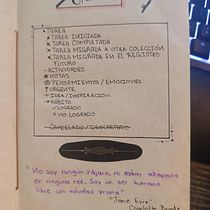 • TAREA
× TAREA INICIADA
× TAREA COMPLETADA
> TAREA MIGRADA A OTRA COLECCIÓN
< TAREA MIGRADA EN EL REGISTRO
FUTURO
- ACTIVIDADES
★ NOTAS
PENSAMIENTOS / EMOCIONES
* URGENTE
+ IDEA / INSPIRACIÓN
HÁBITO
✓ LOGRADO
× NO LOGRADO
CANCELADO / DESCARTADO
"No soy ningún pájaro, ni estoy atrapada
en ninguna red. Soy un ser humano
libre con voluntad propia"
"Jane Eyre"
Charlotte Brontë